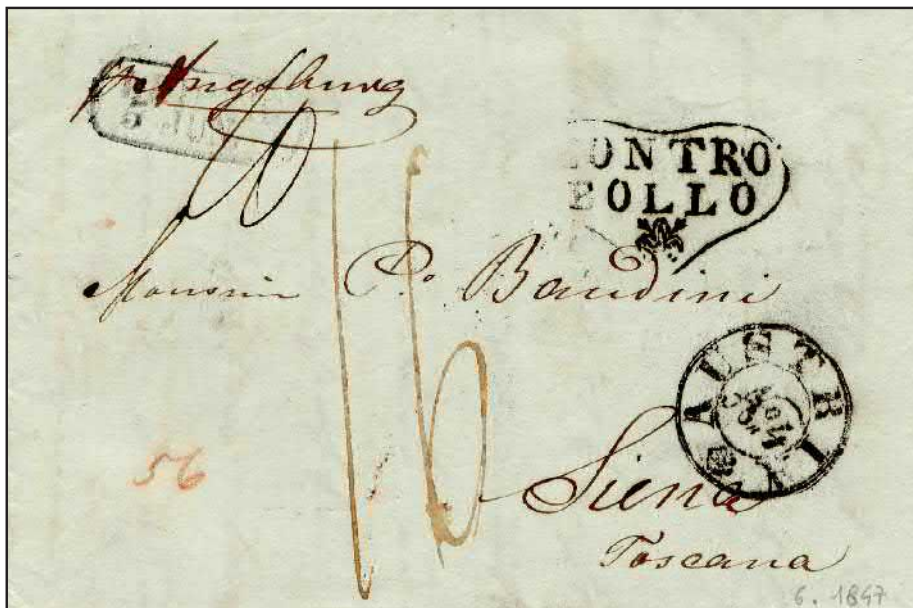 5 JU
CONTRO
BOLLO
Monsieur P. Bandini
AUSTRIA
16
56
Siena
Toscana
6. 1847